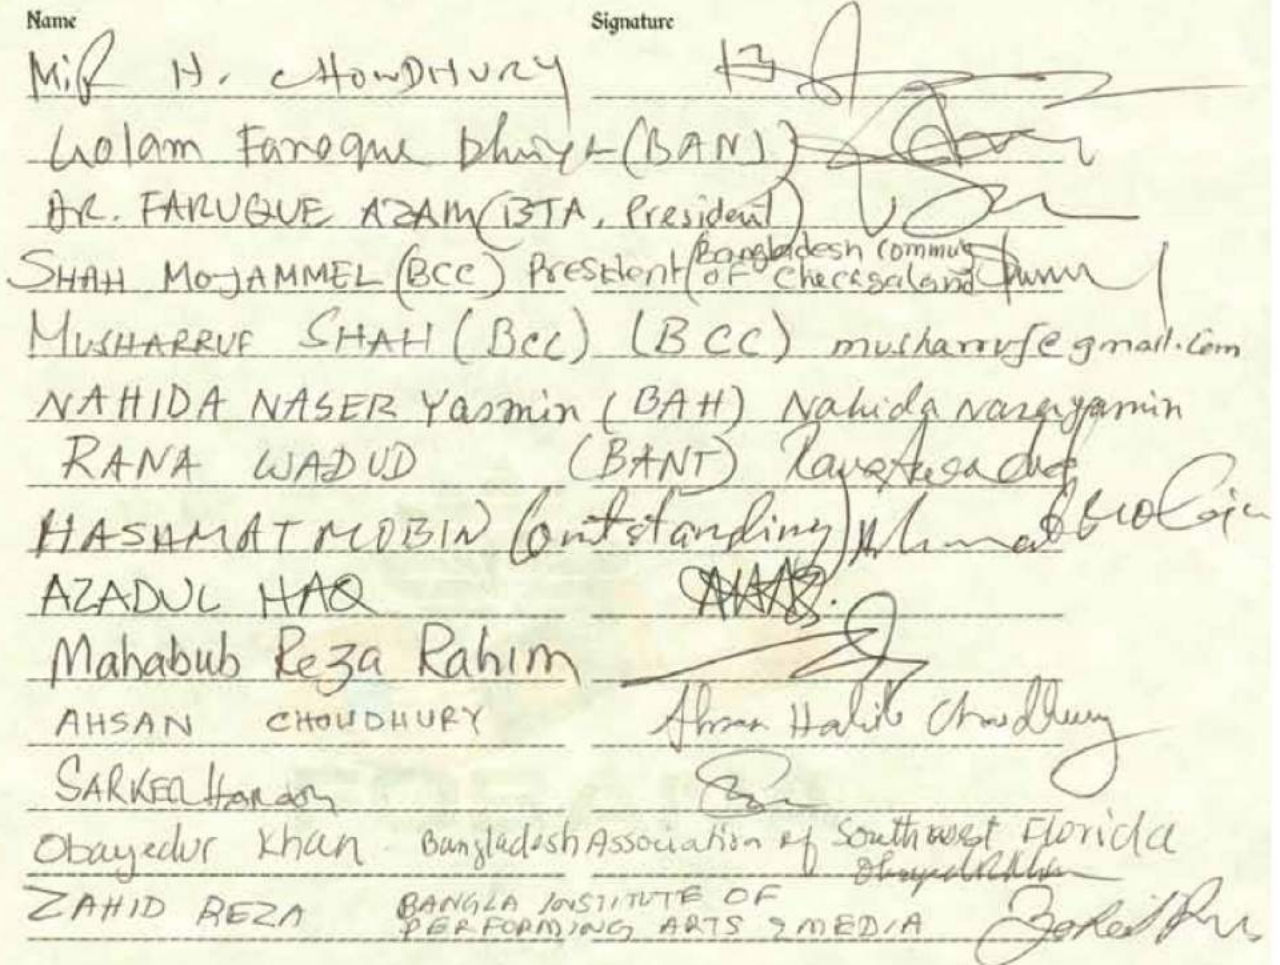 Name Signature
Mir H. CHOWDHURY
Golam Faroque Bhuiya (BANJ)
AR. FARUQUE AZAM (BTA, President)
SHAH MOJAMMEL (BCC) President (Bangladesh Commu
of Checagoland
MUSHARRUF SHAH (BCC) (BCC) musharruf@gmail.com
NAHIDA NASER Yasmin (BAH) Nahida Naseryasmin
RANA WADUD (BANT)
HASHMAT MOBIN (outstanding)
AZADUL HAQ
Mahabub Reza Rahim
AHSAN CHOUDHURY Ahsan Habib Choudhury
SARKER
Obayedur Khan - Bangladesh Association of Southwest Florida
ZAHID REZA BANGLA INSTITUTE OF
PERFORMING ARTS & MEDIA Zahid Reza